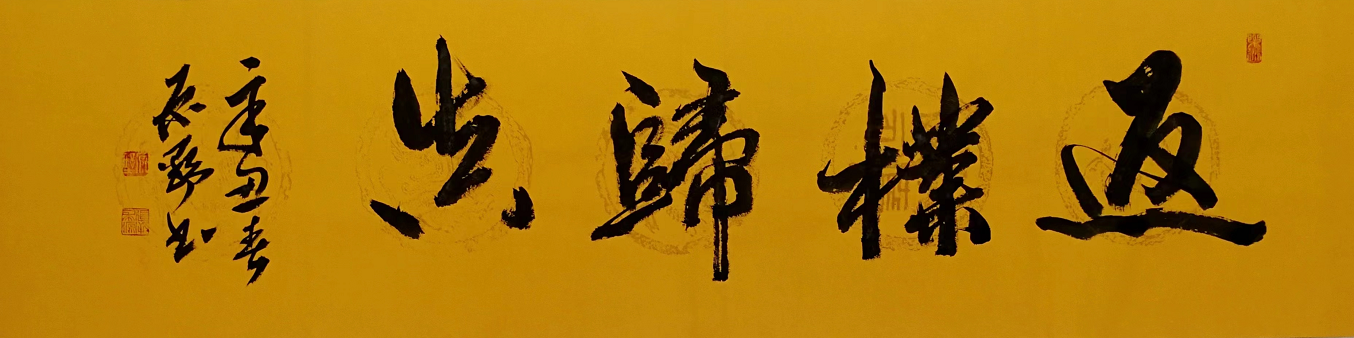 返樸歸真
辛丑春
书